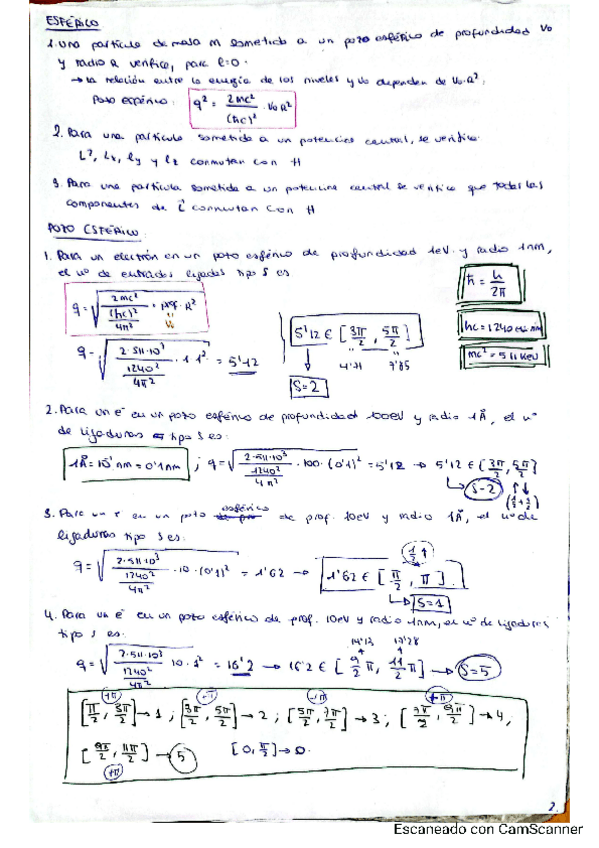 ESFÉRICO
1. Una partícula de masa m sometida a un pozo esférico de profundidad V0
y radio a verifica, para l=0.
→ la relación entre la energía de los niveles y V0 dependen de V0·a².
Pozo esférico: q² = 2mc²/(ħc)² · V0 a²
2. Para una partícula sometida a un potencial central, se verifica
L², Lx, Ly y Lz conmutan con H
3. Para una partícula sometida a un potencial central se verifica que todas las
componentes de L conmutan con H
POZO ESFÉRICO:
1. Para un electrón en un pozo esférico de profundidad 1eV y radio 1nm,
el nº de estados ligados tipo S es
q = √(2mc²/((hc)²/4π²) · prof · R²)
ħ = h/2π
hc = 1240 eV nm
mc² = 511 KeV
q = √(2·511·10³/(1240²/4π²) · 1·1²) = 5'12
5'12 ∈ [3π/2, 5π/2]
4'71 7'85
S=2
2. Para un e⁻ en un pozo esférico de profundidad 100eV y radio 1Å, el nº
de ligaduras tipo S es:
1Å = 10⁻¹ nm = 0'1nm ; q = √(2·511·10³/(1240²/4π²) · 100·(0'1)²) = 5'12 → 5'12 ∈ [3π/2, 5π/2]
S=2
3. Para un e⁻ en un pozo esférico de prof. 10eV y radio 1Å, el nº de
ligaduras tipo S es:
q = √(2·511·10³/(1240²/4π²) · 10·(0'1)²) = 1'62 → 1'62 ∈ [π/2, π]
S=1
4. Para un e⁻ en un pozo esférico de prof. 10eV y radio 1nm, el nº de ligaduras
tipo S es:
14'13 17'28
q = √(2·511·10³/(1240²/4π²) 10·1²) = 16'2 → 16'2 ∈ [9/2 π, 11/2 π] → S=5
+π +π +π +π
[π/2, 3π/2] → 1 ; [3π/2, 5π/2] → 2 ; [5π/2, 7π/2] → 3 ; [7π/2, 9π/2] → 4,
[9π/2, 11π/2] → 5 [0, π/2] → 0.
+π
2.
Escaneado con CamScanner